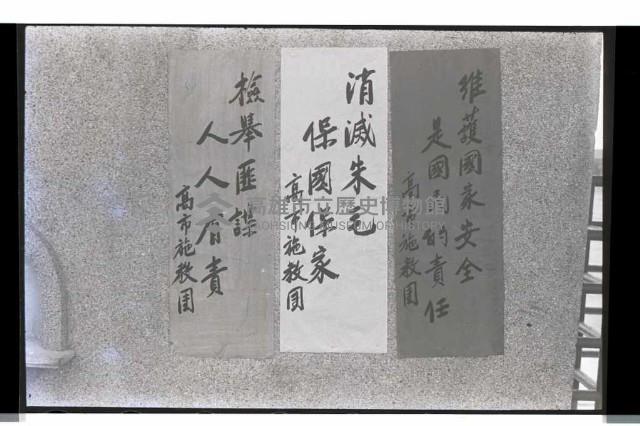 維護國家安全
是國民的責任
高市施教團
消滅朱毛
保國保家
高市施教團
檢舉匪諜
人人有責
高市施教團
高雄市立歷史博物館
KAOHSIUNG MUSEUM OF HISTORY